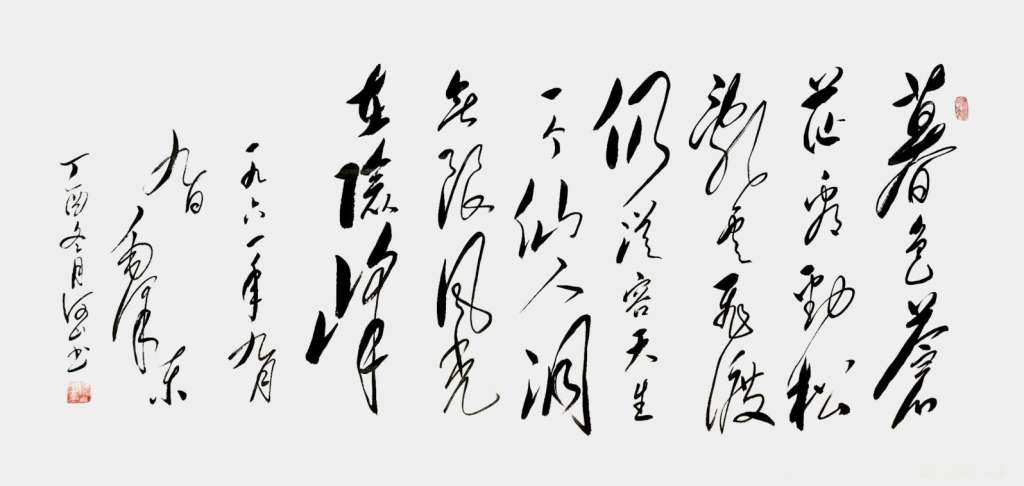 暮色蒼
茫看勁松
亂雲飛渡
仍從容天生
一个仙人洞
无限风光
在險峰
一九六一年九月
九日毛泽东
丁酉冬月河山书